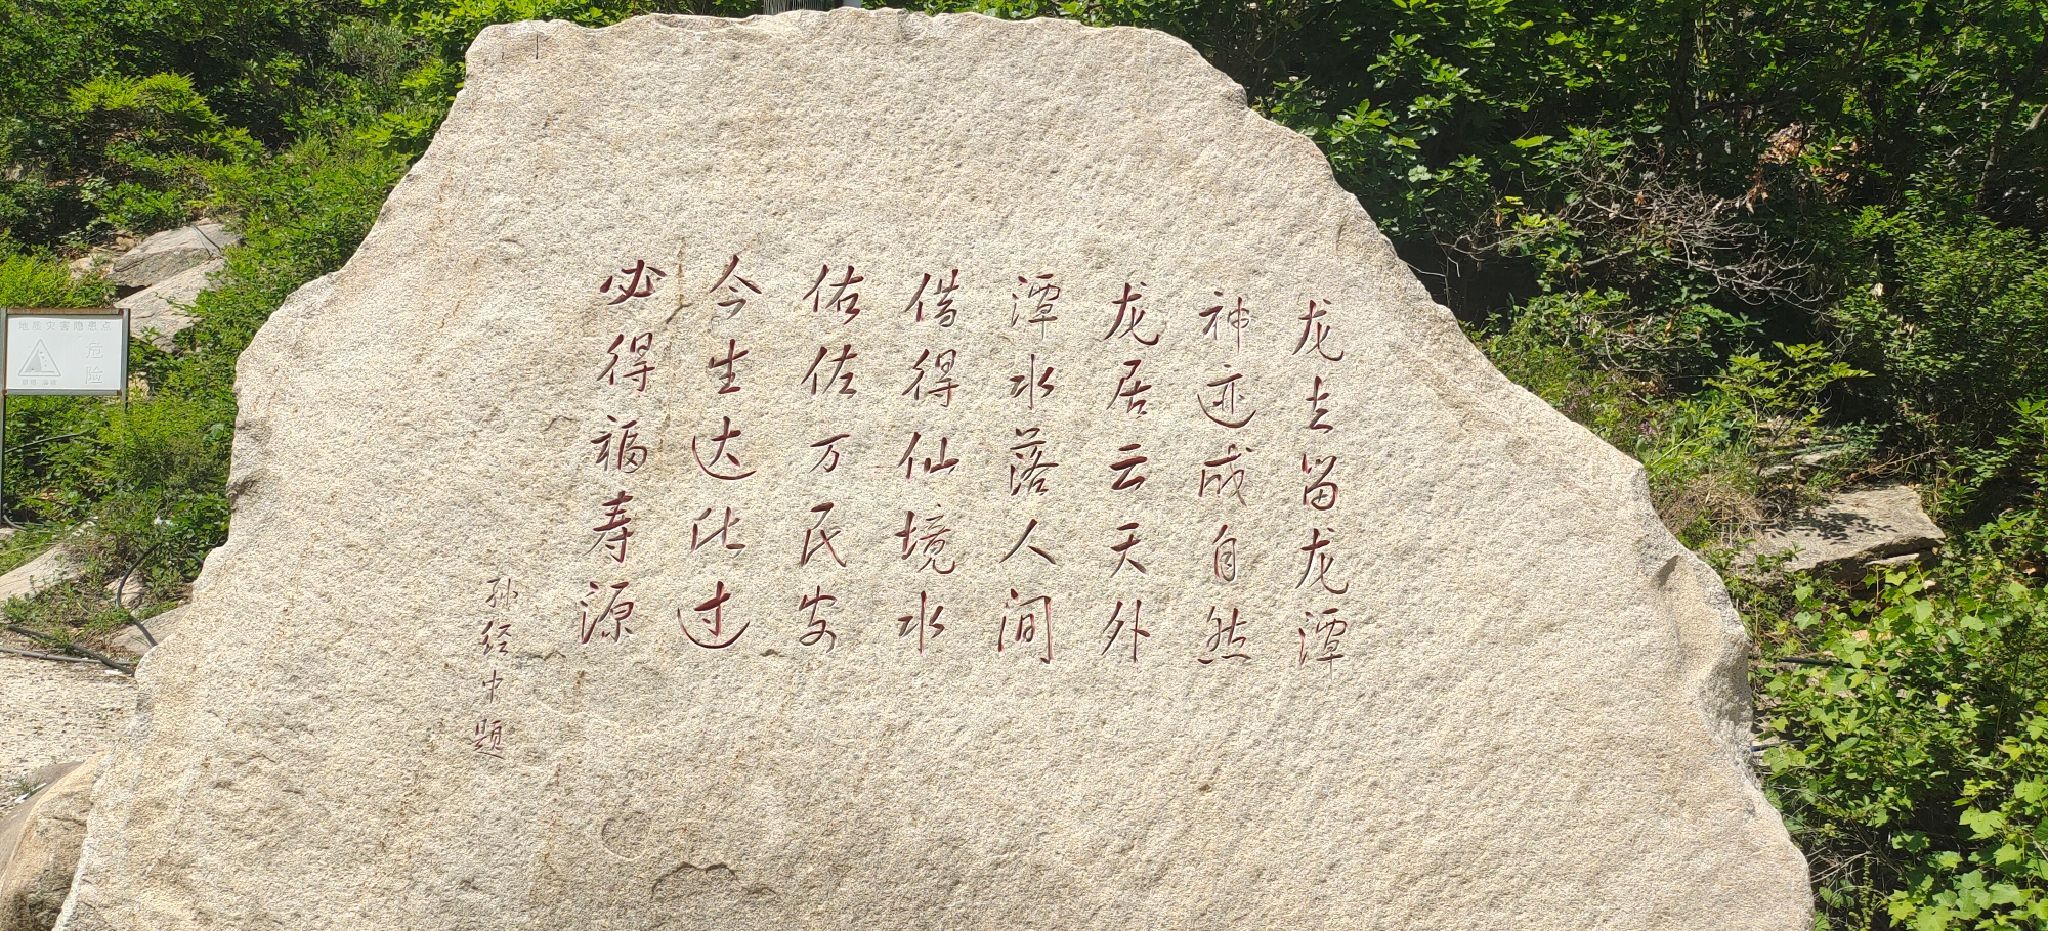 龙去留龙潭
神迹成自然
龙居云天外
潭水落人间
借得仙境水
佑佐万民安
今生达比过
必得福寿源
孙经中题
地质灾害隐患点
危险